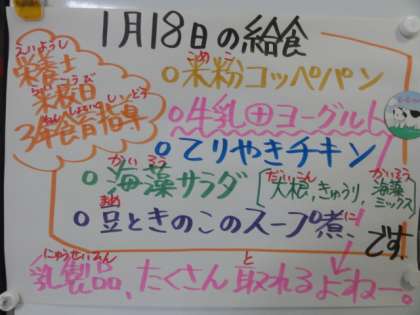 1月18日の給食
えいようし
栄養士
らいこうび
来校日
ねんしょくいくしどう
3年食育指導
こめこ
○米粉コッペパン
○牛乳田ヨーグルト
○てりやきチキン
かいそう
○海藻サラダ
だいこん かいそう
[大根、きゅうり、海藻ミックス]
まめ に
○豆ときのこのスープ煮、
です。
にゅうせいひん と
乳製品、たくさん取れるよねー。